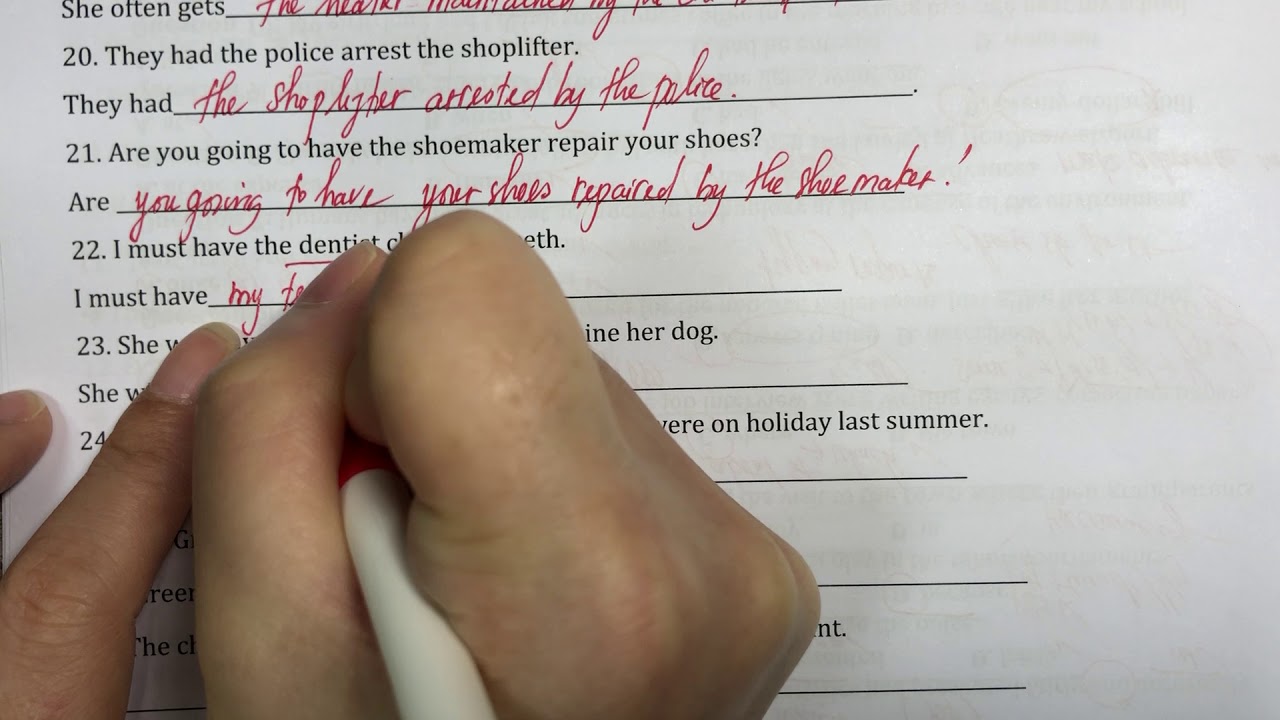 She often gets the heater maintained by the
20. They had the police arrest the shoplifter.
They had the shoplifter arrested by the police.
21. Are you going to have the shoemaker repair your shoes?
Are you going to have your shoes repaired by the shoemaker!
22. I must have the dentist eth.
I must have my te
23. She w ine her dog.
She w
24 were on holiday last summer.
G
reen
The ch nt.